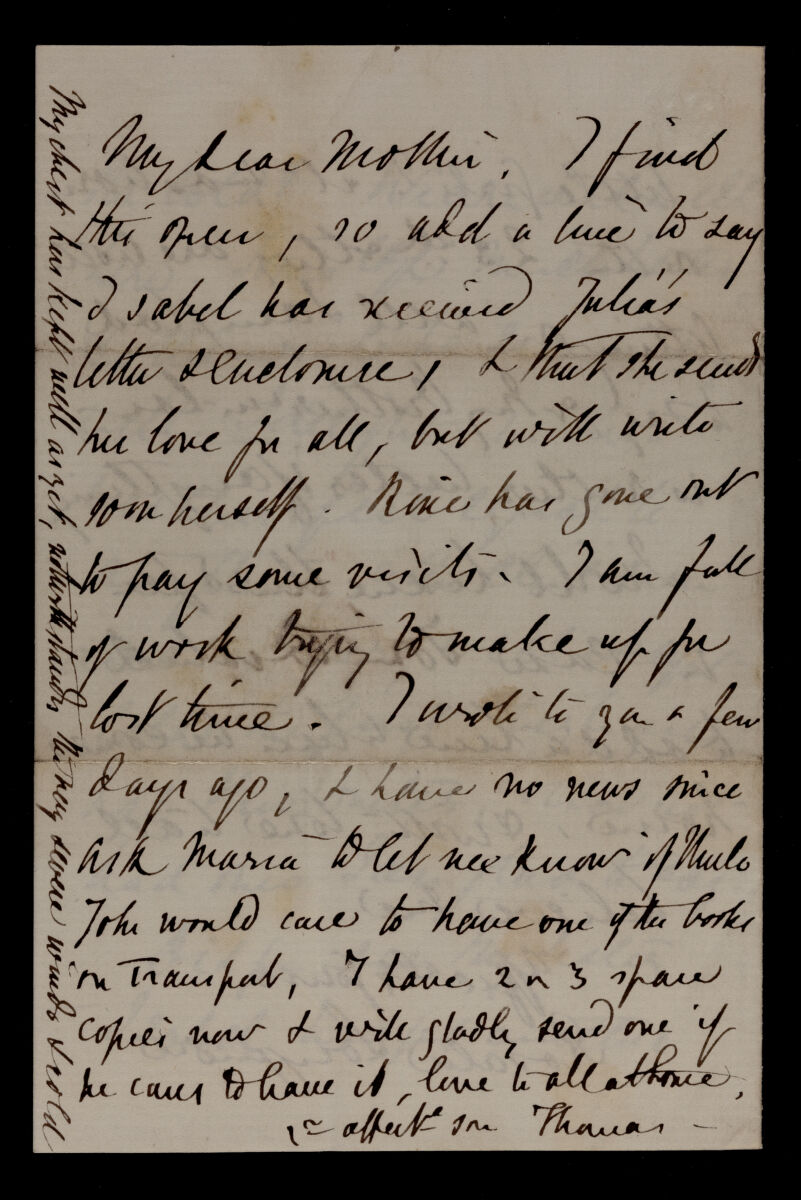 My dear Mother, I find
this open, so add a line to say
Isabel has received Julia's
letter & enclosure, & that she sends
her love for all, but will write
soon herself. has gone out
to pay some visits. I am full
of work trying to make up for
lost time. I wrote to you a few
days ago, & have no news since
ask Maria to let me know if Uncle
John would care to have one of the books
on Transport, I have 2 or 3 spare
copies now & will gladly send one if
he cares to have it, love to all at home,
yr affecte son Thomas –
My chest has kept well as yet, notwithstandg the very severe winds & cold